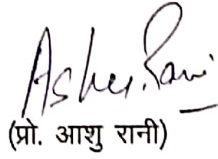 Ashu Rani
(प्रो. आशु रानी)